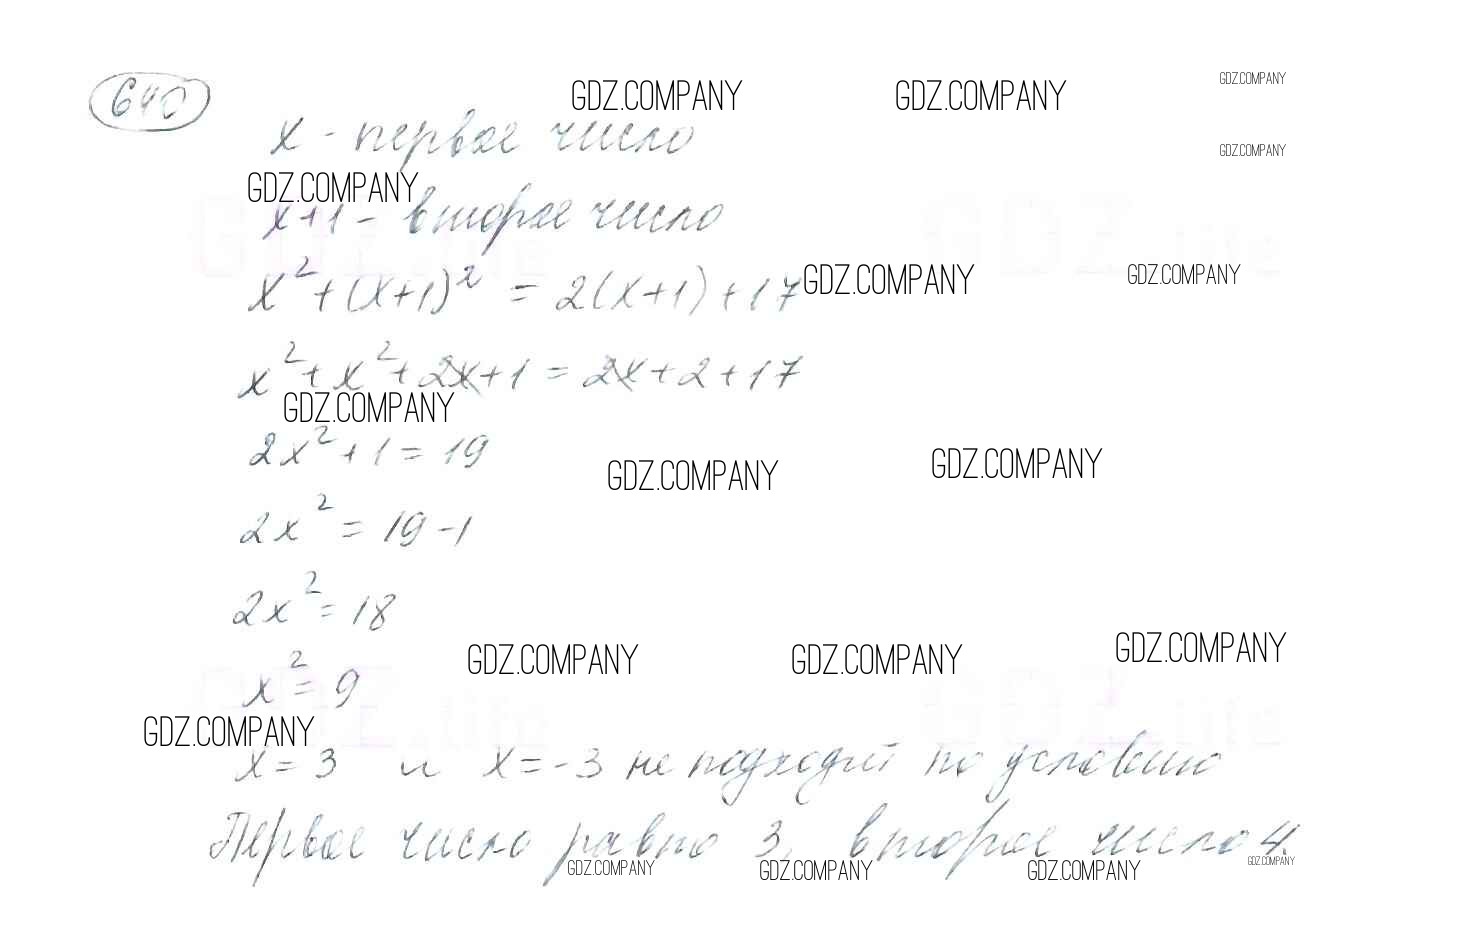 640
GDZ.COMPANY GDZ.COMPANY GDZ.COMPANY
x - первое число
GDZ.COMPANY
GDZ.COMPANY
x+1 - второе число
x² + (x+1)² = 2(x+1) + 17
GDZ.COMPANY GDZ.COMPANY
x² + x² + 2x + 1 = 2x + 2 + 17
GDZ.COMPANY
2x² + 1 = 19
GDZ.COMPANY GDZ.COMPANY
2x² = 19 - 1
2x² = 18
GDZ.COMPANY GDZ.COMPANY GDZ.COMPANY
x² = 9
GDZ.COMPANY
x = 3 и x = -3 не подходит по условию
Первое число равно 3, второе число 4.
GDZ.COMPANY GDZ.COMPANY GDZ.COMPANY GDZ.COMPANY